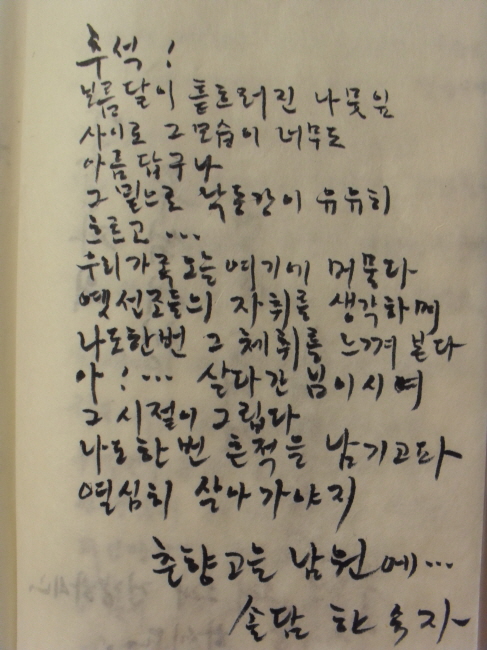 추석!
보름달이 흩트러진 나뭇잎
사이로 그 모습이 너무도
아름답구나
그 밑으로 낙동강이 유유히
흐르고 ...
우리가족 오늘 여기에 머물다
옛선조들의 자취를 생각하며
나도한번 그 체취를 느껴 본다
아! ... 살다간 님이시여
그 시절이 그립다
나도 한번 흔적을 남기고파
열심히 살아 가야지
춘향고을 남원에...
솔담 한숙자